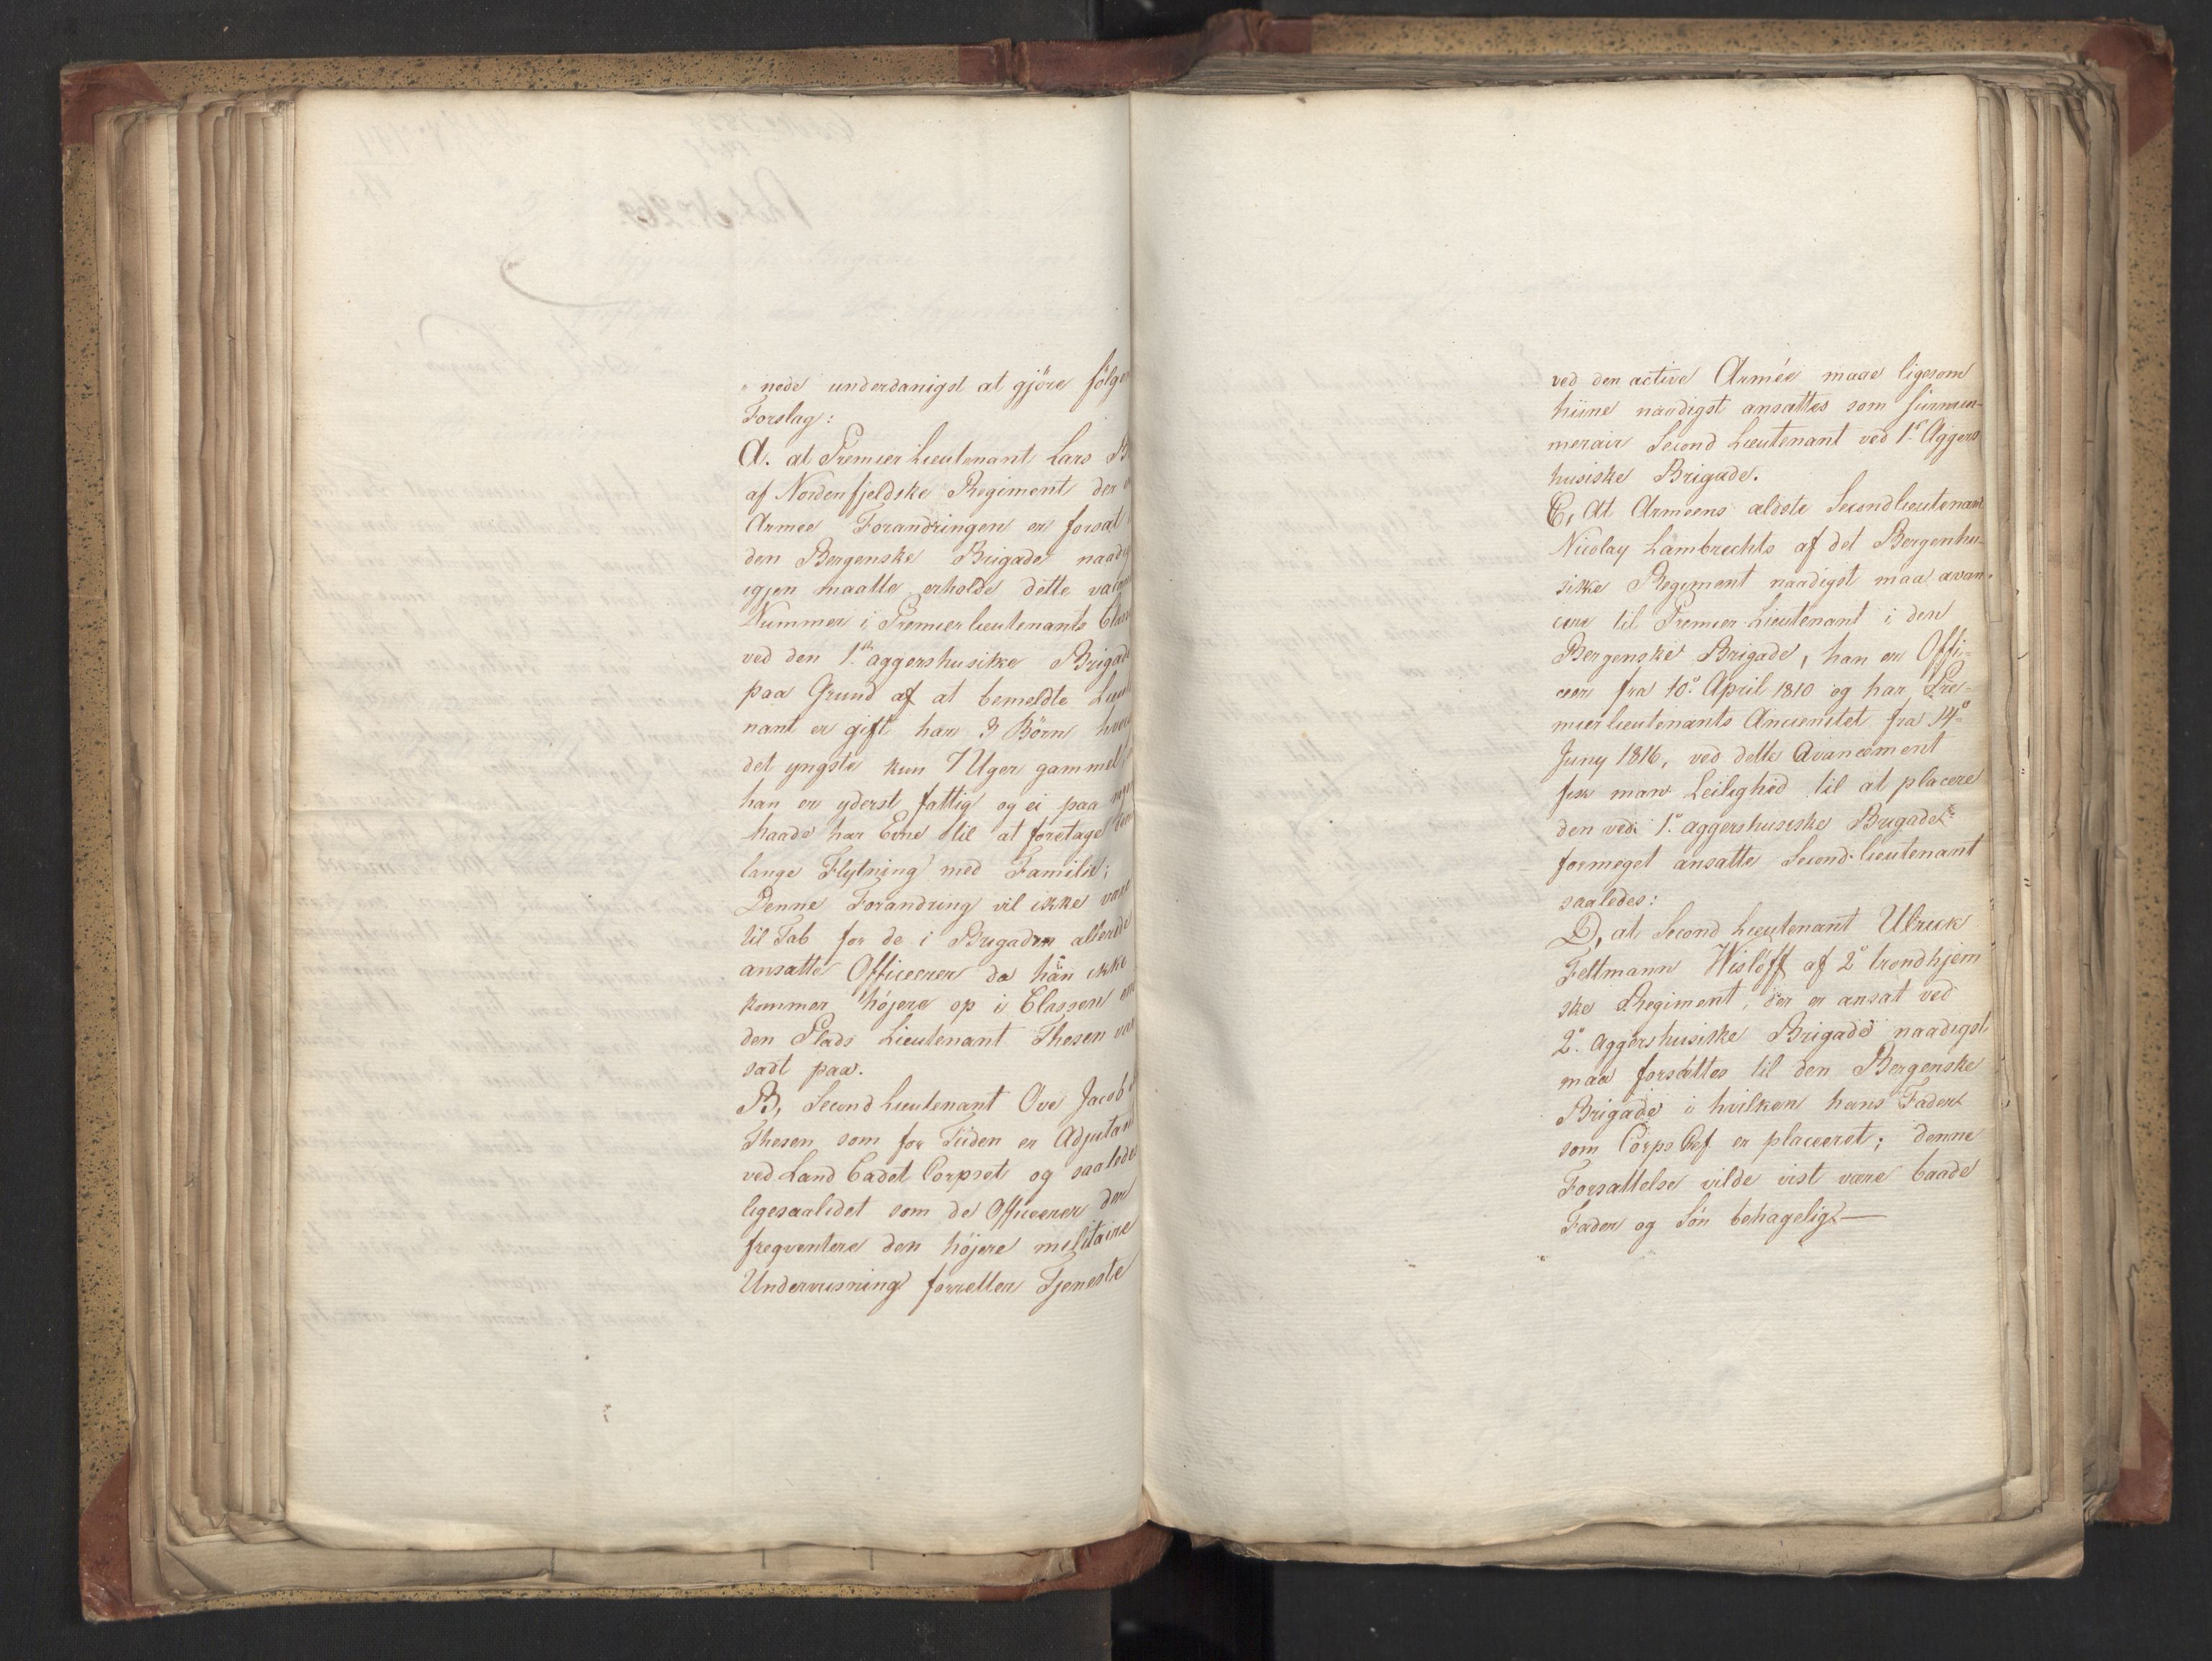 "nede underdanigst at gjöre fölge
Forslag:
A. at Premier Lieutenant Lars B
af Nordenfjeldske Regiment der
Armee Forandringen er forsat
den Bergenske Brigade naadig
igjen maatte erholde dette
Nummer i Premierlieutenants Clas
ved den 1ste aggershusiske Brigad
paa Grund af at bemeldte Lieut
nant er gift har 3 Börn
det yngste kun 7 Uger gammel
han er yderst fattig og ei paa
haade har Evne til at foretage den
lange Flytning med Familie;
Denne Forandring vil ikke være
til Tab for de i Brigaden allerede
ansatte Officerer da han ikke
kommer höjere op i Classen en
den Plads Lieutenant Thesen var
sadt paa.
B, Second Lieutenant Ove Jacob
Thesen som for Tiiden er Adjutan
ved Land Cadet Corpset og saaledes
ligesaalidet som de Officerer der
freqventere den höjere militaire
Underviisning forretter Tjeneste
ved den active Armée maae ligesom
hiine naadigst ansattes som surnum-
merair Second Lieutenant ved 1e Aggers
husiske Brigade.
C, At Armeens ældste Secondlieutenant
Nicolay Lambrechts af det Bergenhu-
siske Regiment naadigst maa avan-
cere til Premier-Lieutenant i den
Bergenske Brigade, han er Offi-
ceer fra 10e April 1810 og har Pre-
mierlieutenants Ancienitet fra 14e
Juny 1816, ved dette Avancement
fik man Leilighed til at placere
den ved 1e aggershusiske Brigade
formeget ansatte Second-lieutenant
saaledes:
D, at Second Lieutenant Ulrick
Feltmann Wislöff af 2e trondhjem
ske Regiment, der er ansat ved
2e aggershusiske Brigade naadigst
maa forsættes til den Bergenske
Brigade i hvilken hans Fader
som Corps Chef er placeret; denne
Forsattelse vilde vist være baade
Fader og Sön behageligt—